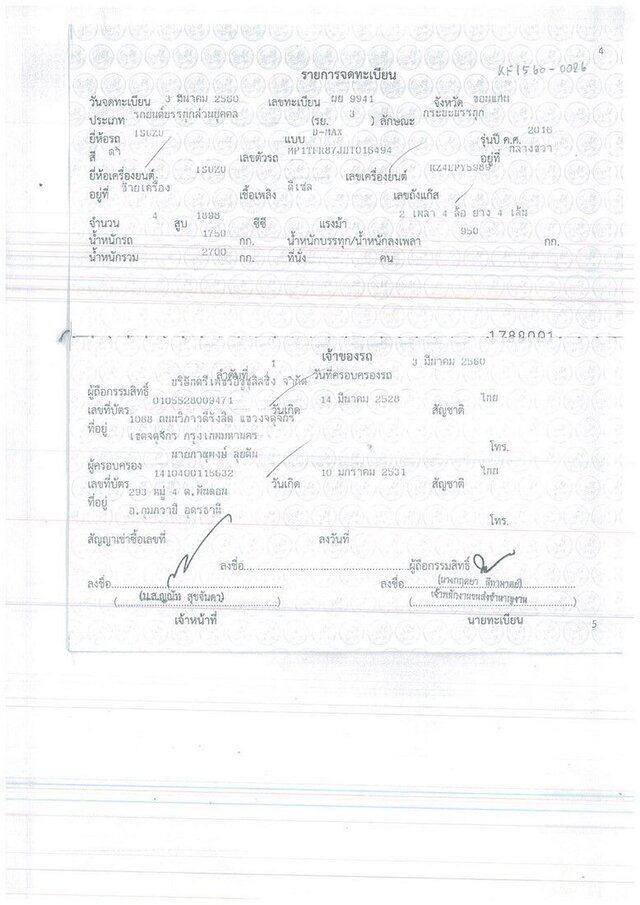 4
รายการจดทะเบียน
KF1560-0026
วันจดทะเบียน 3 มีนาคม 2560 เลขทะเบียน ผย 9941 จังหวัด ขอนแก่น
ประเภท รถยนต์บรรทุกส่วนบุคคล (รย. 3 ) ลักษณะ กระบะบรรทุก
ยี่ห้อรถ ISUZU แบบ D-MAX รุ่นปี ค.ศ. 2016
สี ดำ เลขตัวรถ อยู่ที่ กลางขวา
ยี่ห้อเครื่องยนต์ ISUZU เลขเครื่องยนต์
อยู่ที่ ซ้ายเครื่อง เชื้อเพลิง ดีเซล เลขถังแก๊ส
จำนวน 4 สูบ 1898 ซีซี แรงม้า 2 เพลา 4 ล้อ ยาง 4 เส้น
น้ำหนักรถ 1750 กก. น้ำหนักบรรทุก/น้ำหนักลงเพลา 950 กก.
น้ำหนักรวม 2700 กก. ที่นั่ง คน
1788001
เจ้าของรถ
ลำดับที่ 1 วันที่ครอบครองรถ 3 มีนาคม 2560
ผู้ถือกรรมสิทธิ์ บริษัทตรีเพชรอีซูซุลิสซิ่ง จำกัด
เลขที่บัตร 0105528009471 วันเกิด 14 มีนาคม 2528 สัญชาติ ไทย
ที่อยู่ 1088 ถนนวิภาวดีรังสิต แขวงจตุจักร
เขตจตุจักร กรุงเทพมหานคร โทร.
ผู้ครอบครอง นายภาณุพงษ์ ลุยตัน
เลขที่บัตร 1410400115632 วันเกิด 10 มกราคม 2531 สัญชาติ ไทย
ที่อยู่ 293 หมู่ 4 ต.พันดอน
อ.กุมภวาปี อุดรธานี โทร.
สัญญาเช่าซื้อเลขที่ ลงวันที่
ลงชื่อ ผู้ถือกรรมสิทธิ์
ลงชื่อ ลงชื่อ
เจ้าหน้าที่ นายทะเบียน
5